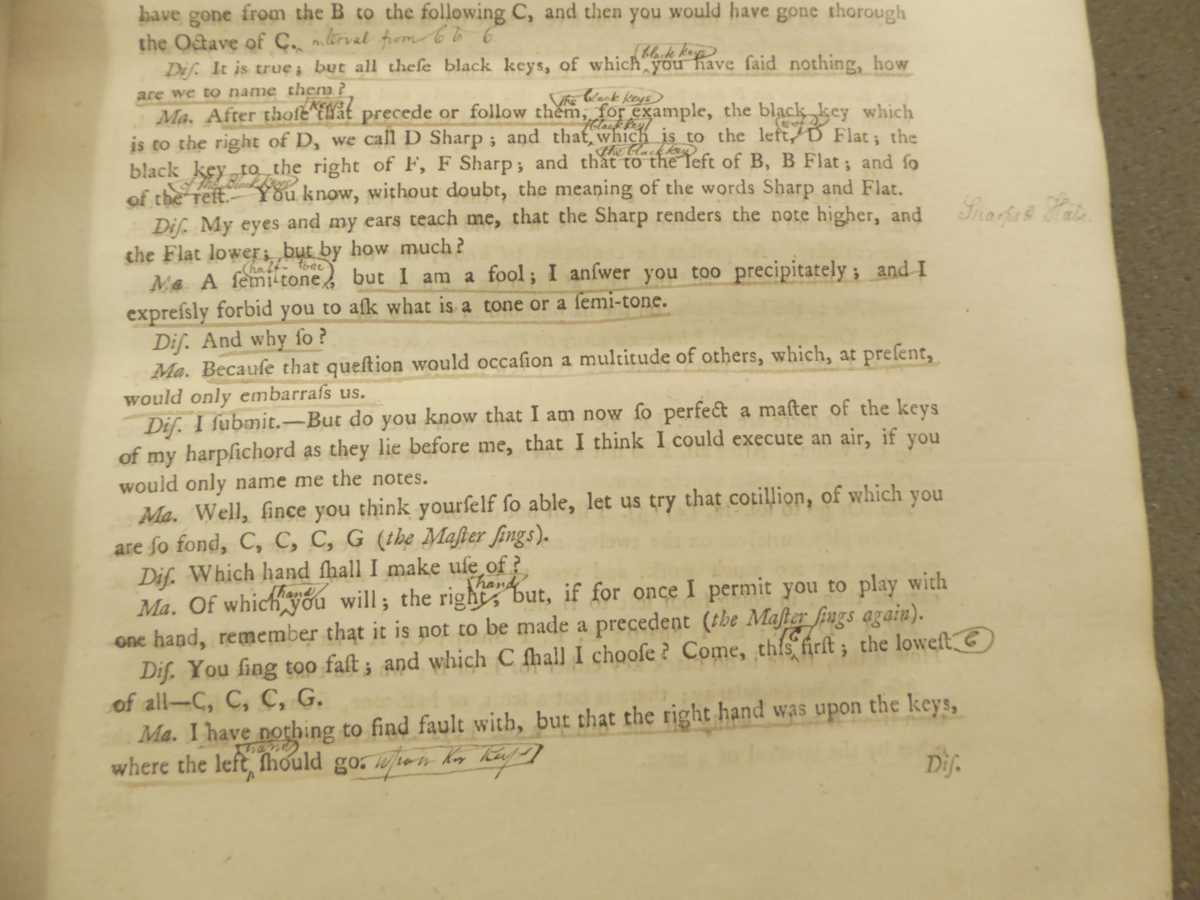 have gone from the B to the following C, and then you would have gone thorough
the Octave of C. interval from C to C
Diſ. It is true; but all theſe black keys, of which black keys you have ſaid nothing, how
are we to name them?
Ma. After thoſe keys that precede or follow them, the black keys for example, the black key which
is to the right of D, we call D Sharp; and that black key which is to the left, of D Flat; the
black key to the right of F, F Sharp; and that the black key to the left of B, B Flat; and ſo
of the reſt. of the black keys — You know, without doubt, the meaning of the words Sharp and Flat.
Diſ. My eyes and my ears teach me, that the Sharp renders the note higher, and Sharps & Flats.
the Flat lower; but by how much?
Ma A ſemi-tone half-tone; but I am a fool; I anſwer you too precipitately; and I
expreſsly forbid you to aſk what is a tone or a ſemi-tone.
Diſ. And why ſo?
Ma. Becauſe that queſtion would occaſion a multitude of others, which, at preſent,
would only embarraſs us.
Diſ. I ſubmit.—But do you know that I am now ſo perfect a maſter of the keys
of my harpſichord as they lie before me, that I think I could execute an air, if you
would only name me the notes.
Ma. Well, ſince you think yourſelf ſo able, let us try that cotillion, of which you
are ſo fond, C, C, C, G (the Maſter ſings).
Diſ. Which hand ſhall I make uſe of?
Ma. Of which hand you will; the right hand; but, if for once I permit you to play with
one hand, remember that it is not to be made a precedent (the Maſter ſings again).
Diſ. You ſing too faſt; and which C ſhall I chooſe? Come, this C firſt; the loweſt C
of all—C, C, C, G.
Ma. I have nothing to find fault with, but that the right hand was upon the keys,
where the left hand ſhould go. upon the keys
Diſ.